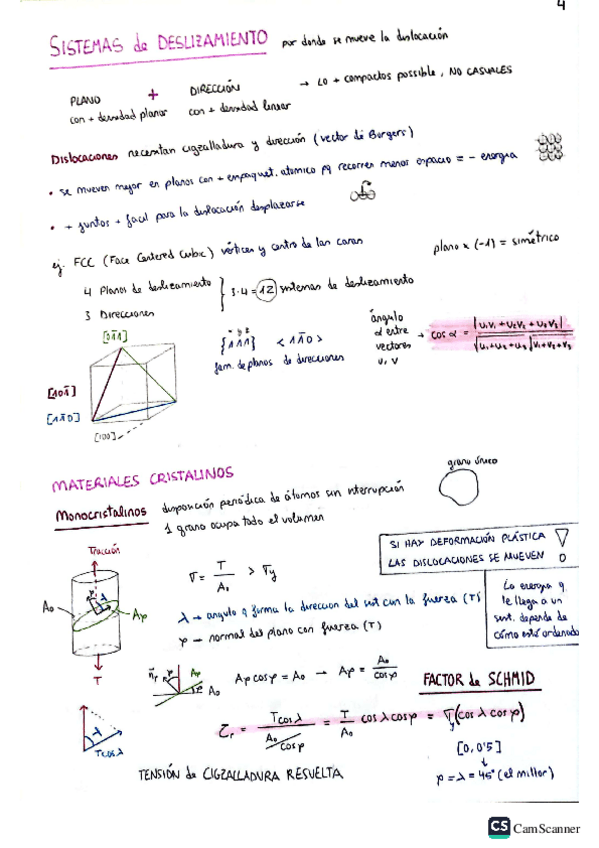 4
SISTEMAS de DESLIZAMIENTO por donde se mueve la dislocación
PLANO + DIRECCIÓN → LO + compactos possible, NO CASUALES
con + densidad planar con + densidad linear
Dislocaciones necesitan cigzalladura y dirección (vector de Burgers)
• se mueven mejor en planos con + empaquet. atomico pq recorren menos espacio = - energía
• + juntos + facil para la dislocación desplazarse
ej. FCC (Face Centered Cubic) vértices y centro de las caras
plano x (-1) = simétrico
4 Planos de deslizamiento
3 Direcciones
} 3·4 = 12 sistemas de deslizamiento
{111} <11̄0>
fam. de planos de direcciones
ángulo α entre vectores u, v → cos α = |u₁v₁ + u₂v₂ + u₃v₃| / √u₁+u₂+u₃ √v₁+v₂+v₃
[01̄1]
[101̄]
[11̄0]
[100]
MATERIALES CRISTALINOS
grano único
Monocristalinos disposición periódica de átomos sin interrupción
1 grano ocupa todo el volumen
SI HAY DEFORMACIÓN PLÁSTICA
LAS DISLOCACIONES SE MUEVEN
Tracción
σ = T / A₀ > σy
λ → angulo q forma la direccion del sist con la fuerza (T)
φ → normal del plano con fuerza (T)
La energia q
le llega a un
sist. depende de
cómo esté ordenado
A₀
Aφ
T
Aφ cosφ = A₀ → Aφ = A₀ / cosφ
FACTOR de SCHMID
τr = T cosλ / (A₀ / cosφ) = T / A₀ cosλ cosφ = σy (cosλ cosφ)
T cosλ
[0, 0'5]
↓
φ = λ = 45° (el millor)
TENSIÓN de CIGZALLADURA RESUELTA
CS CamScanner